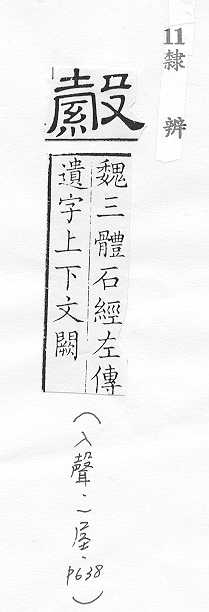 11隸辨
縠
魏三體石經左傳
遺字上下文闕
(入聲·一屋·p638)